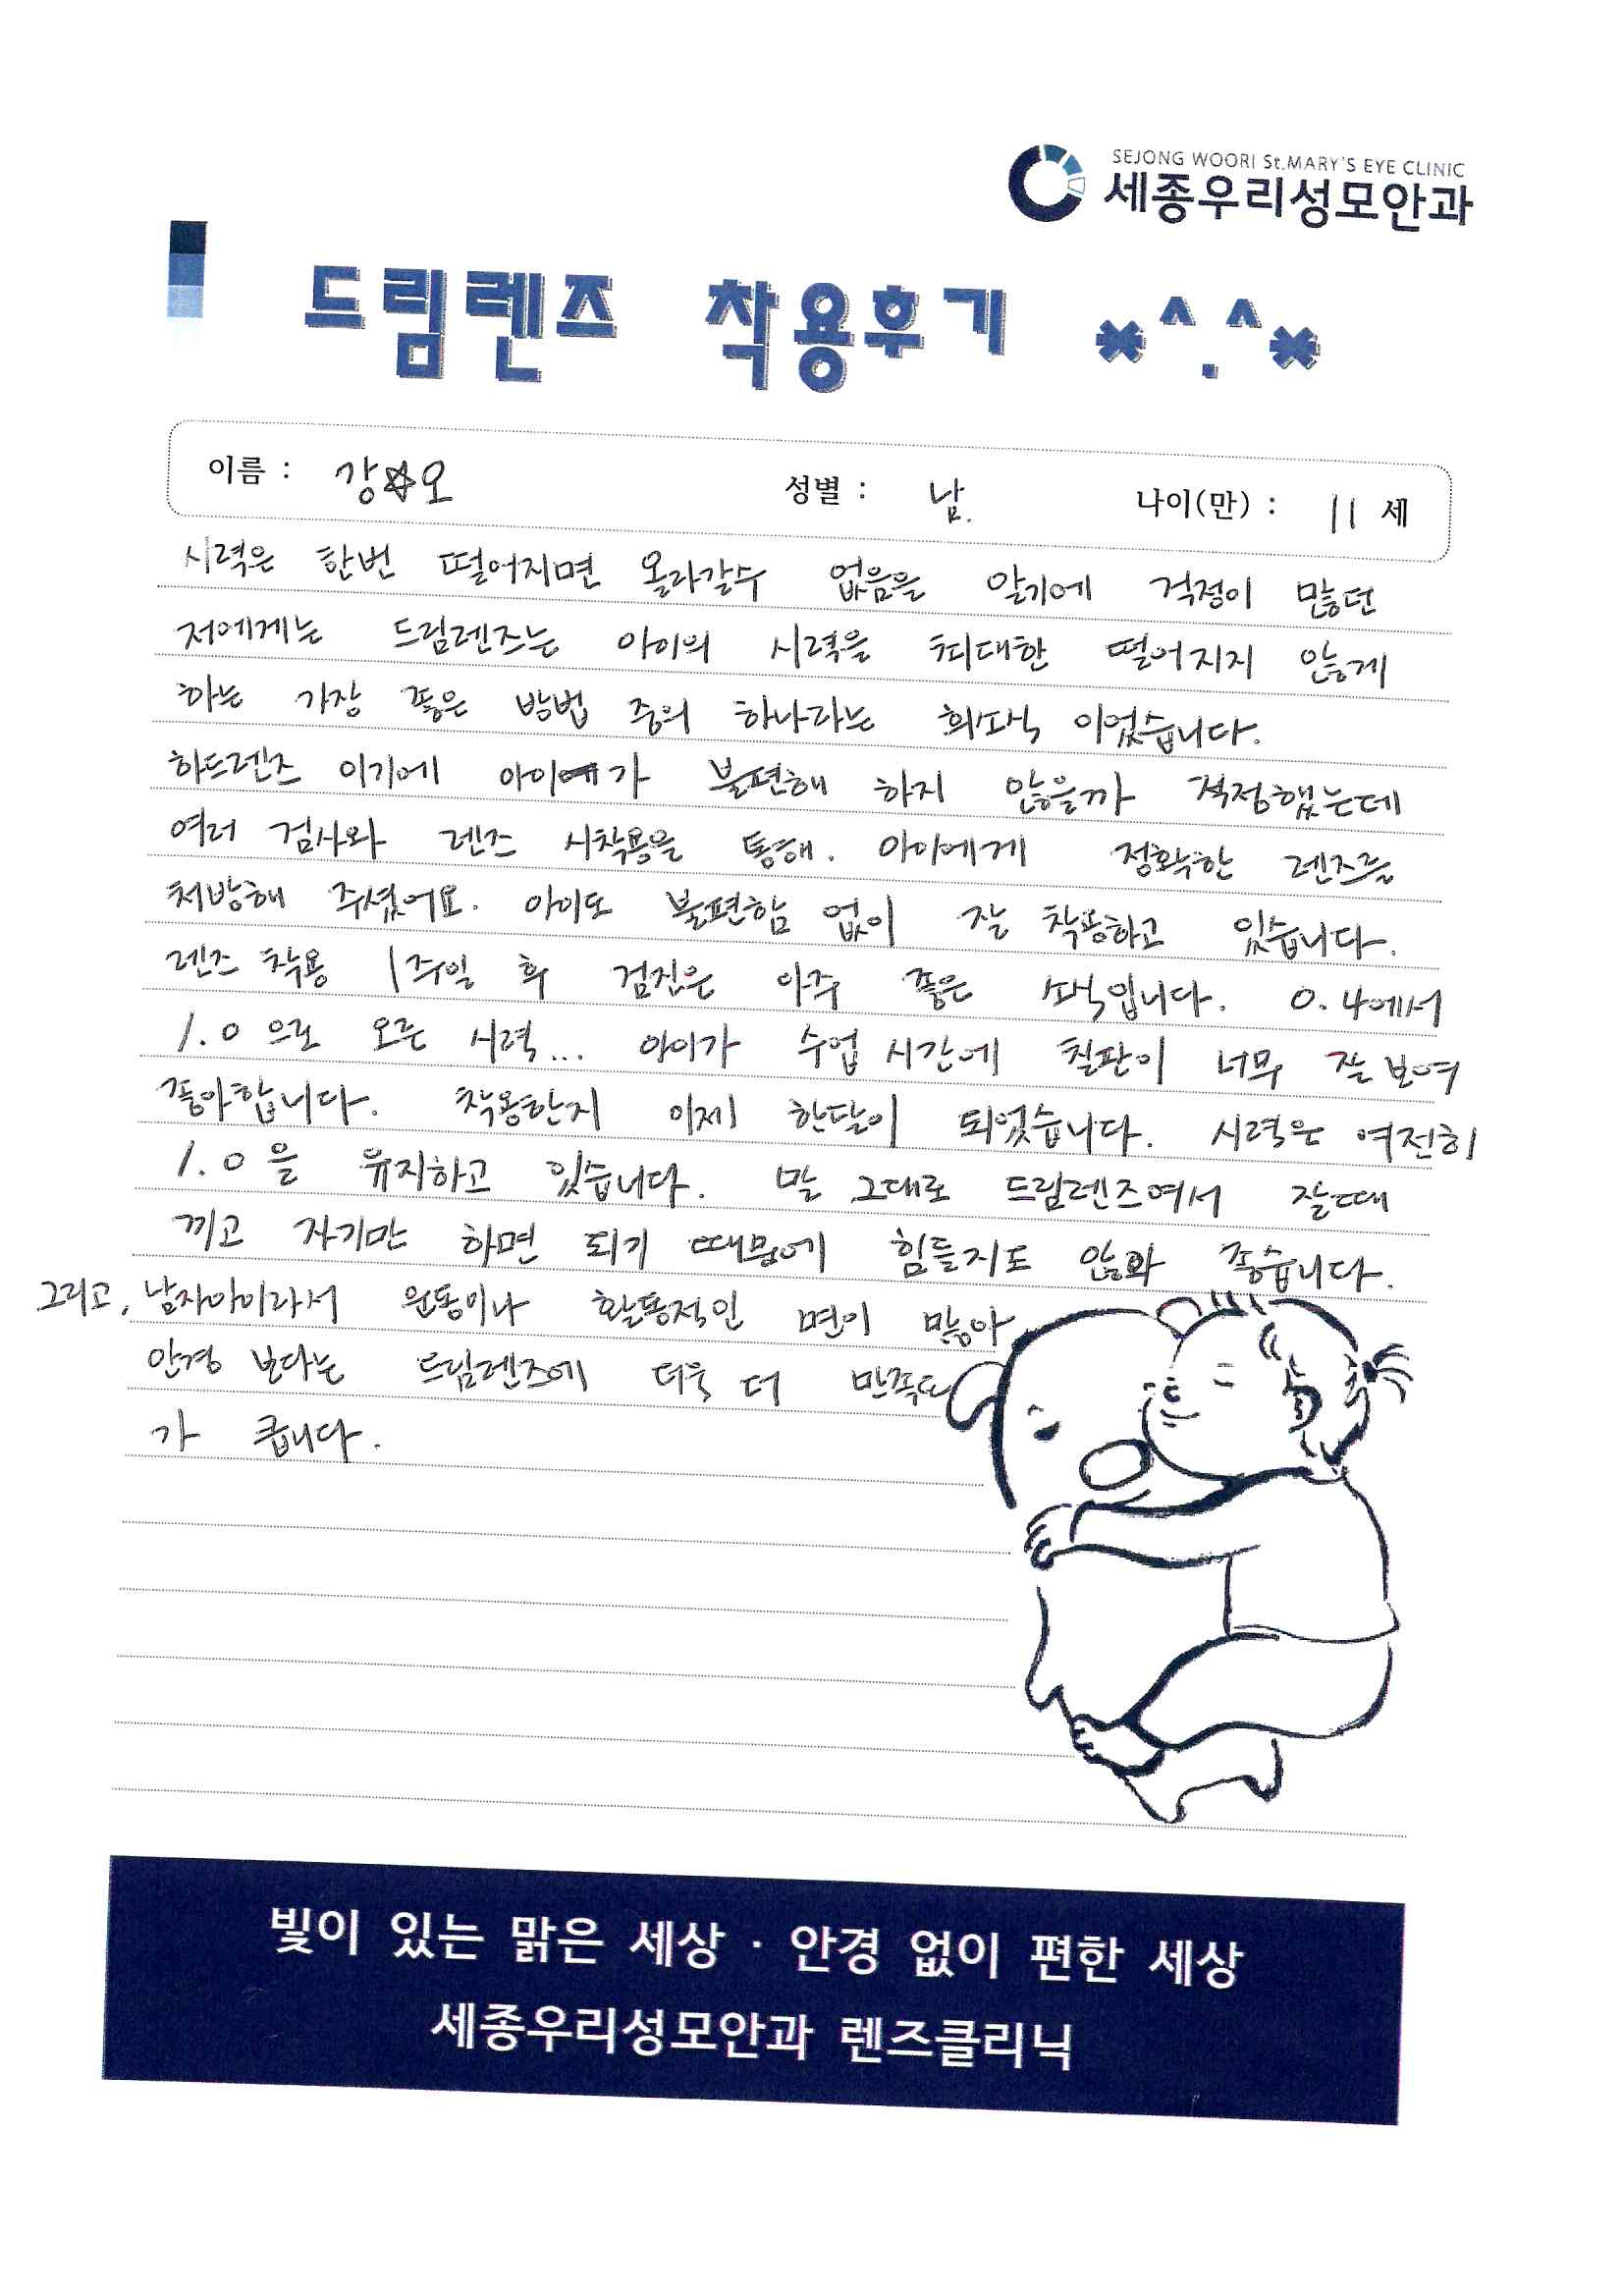 SEJONG WOORI St.MARY'S EYE CLINIC
세종우리성모안과
드림렌즈 착용후기 *^.^*
이름 : 강☆오 성별 : 남. 나이(만) : 11 세
시력은 한번 떨어지면 올라갈수 없음을 알기에 걱정이 많던
저에게는 드림렌즈는 아이의 시력을 최대한 떨어지지 않게
하는 가장 좋은 방법 중의 하나라는 희소식 이었습니다.
하드렌즈 이기에 아이가 불편해 하지 않을까 걱정했는데
여러 검사와 렌즈 시착용을 통해. 아이에게 정확한 렌즈를
처방해 주셨어요. 아이도 불편함 없이 잘 착용하고 있습니다.
렌즈 착용 1주일 후 검진은 아주 좋은 소식입니다. 0.4에서
1.0 으로 오른 시력... 아이가 수업 시간에 칠판이 너무 잘 보여
좋아합니다. 착용한지 이제 한달이 되었습니다. 시력은 여전히
1.0 을 유지하고 있습니다. 말 그대로 드림렌즈여서 잘때
끼고 자기만 하면 되기 때문에 힘들지도 않아 좋습니다.
그리고, 남자아이라서 운동이나 활동적인 면이 많아
안경 보다는 드림렌즈에 더욱 더 만족도
가 큽니다.
빛이 있는 맑은 세상 · 안경 없이 편한 세상
세종우리성모안과 렌즈클리닉